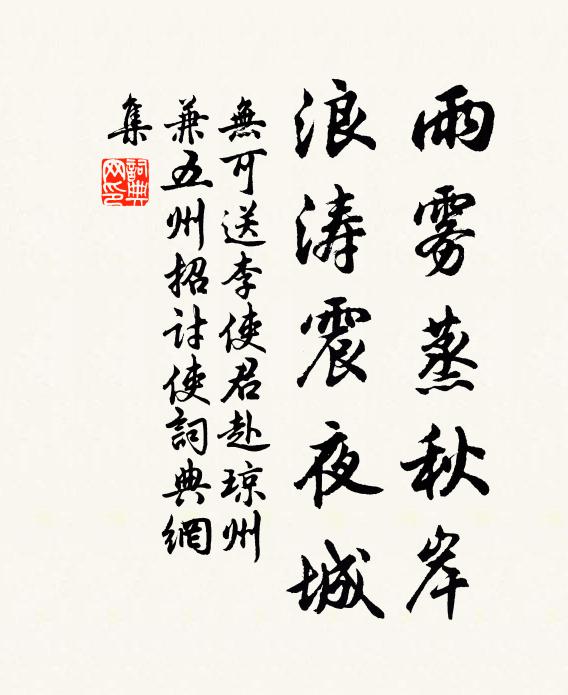 雨雾蒸秋岸
浪涛震夜城
無可送李使君赴琼州
兼五州招討使詞典網
集
詞典网印